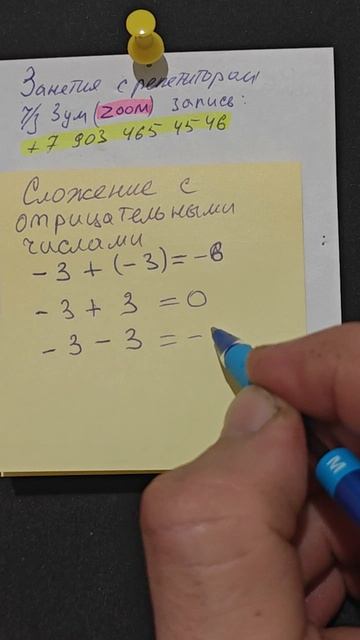 Занятия с репетитором
ч/з Зум (ZOOM) запись:
+7 903 465 45 46
Сложение с
отрицательными
числами
-3 + (-3) = -6
-3 + 3 = 0
-3 - 3 = -
M